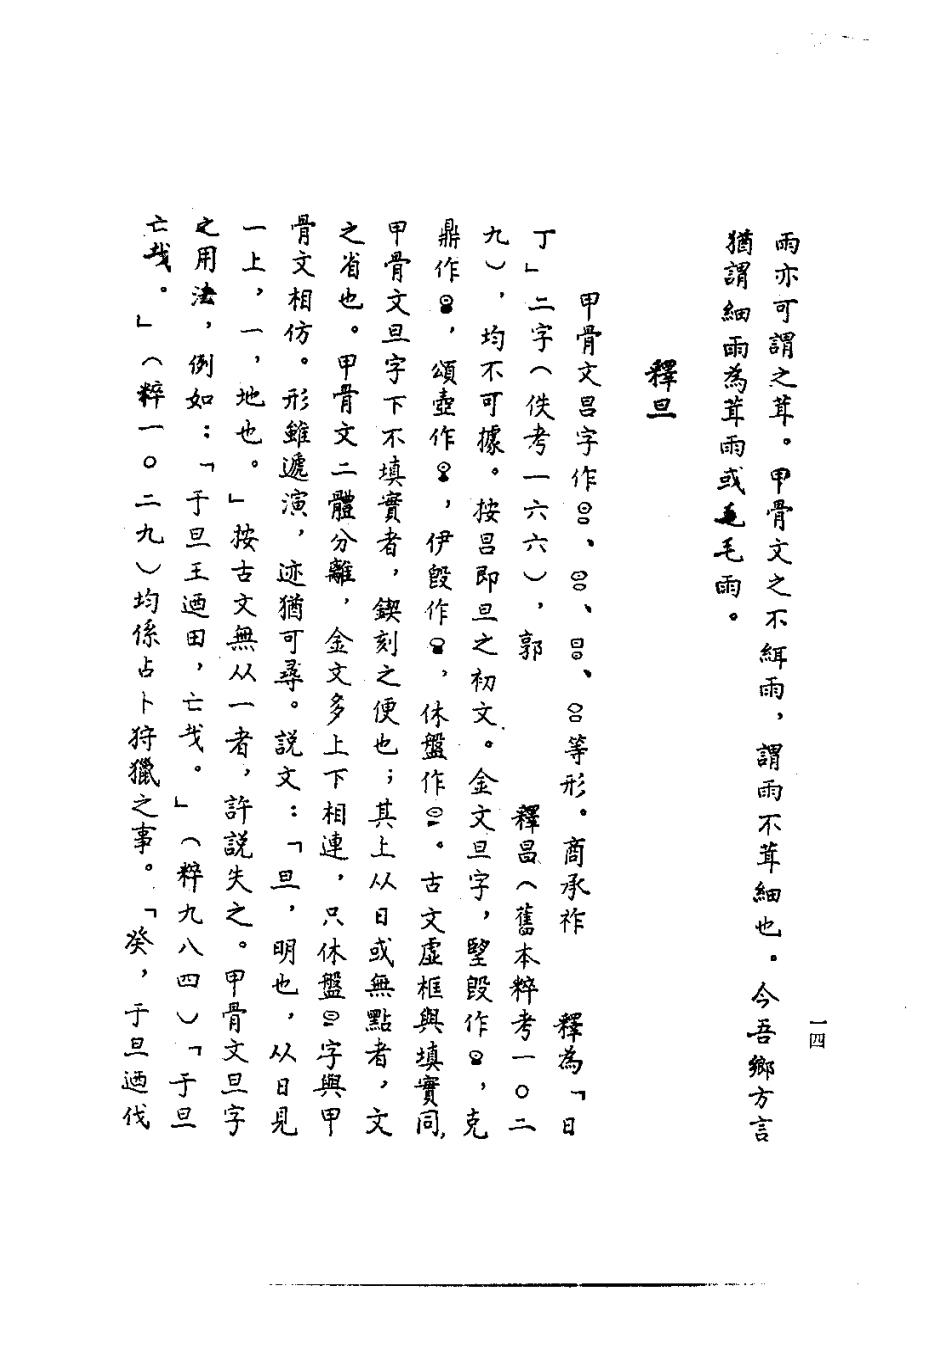 雨亦可謂之茸。甲骨文之不緝雨，謂雨不茸細也。今吾鄉方言
猶謂細雨為茸雨或毛毛雨。
釋旦
甲骨文昌字作、、、等形。商承祚 釋為「日
丁」二字（佚考一六六），郭 釋昌（舊本粹考一〇二
九），均不可據。按昌即旦之初文。金文旦字，𥪰𣪘作，克
鼎作，頌壺作，伊𣪘作，休盤作。古文虛框與填實同，
甲骨文旦字下不填實者，鍥刻之便也；其上从日或無點者，文
之省也。甲骨文二體分離，金文多上下相連，只休盤字與甲
骨文相仿。形雖遞演，迹猶可尋。說文：「旦，明也，从日見
一上，一，地也。」按古文無从一者，許說失之。甲骨文旦字
之用法，例如：「于旦王迺田，亡𢦏。」（粹九八四）「于旦
亡𢦏。」（粹一〇二九）均係占卜狩獵之事。「癸，于旦迺伐
一四